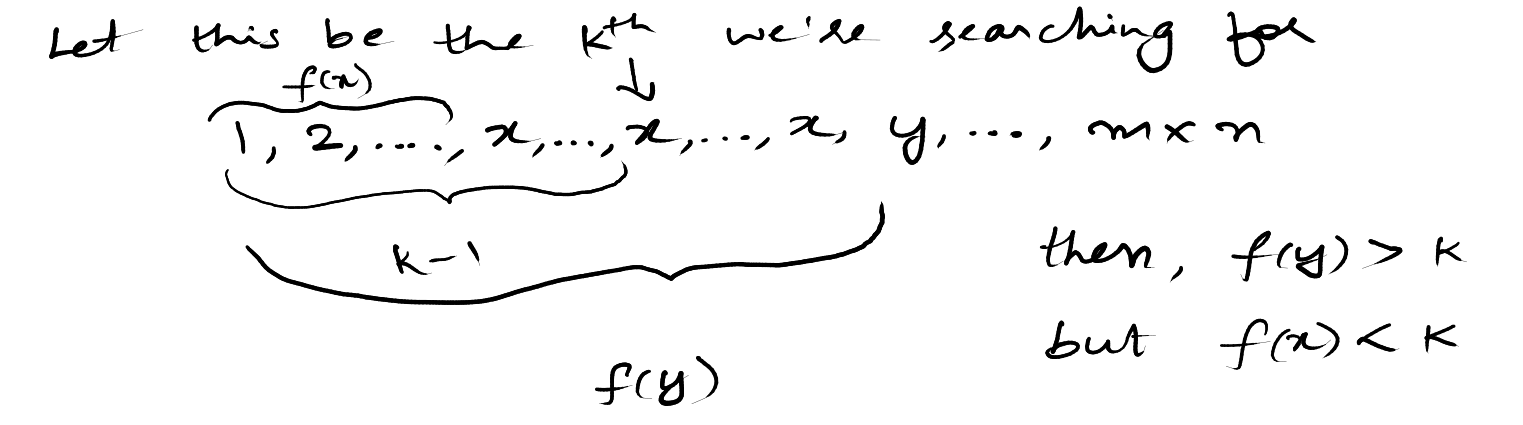 Let this be the kth we're searching for
f(x) ↓
1, 2, ...., x,..., x,..., x, y, ..., m x n
k-1
then, f(y) > k
but f(x) < k
f(y)